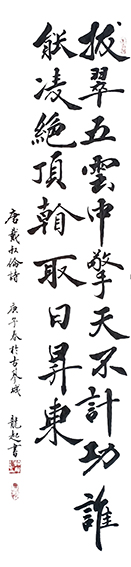 拔翠五雲中擎天不計功誰
能凌絕頂翰取日昇東
唐戴叔倫詩 庚子春於古琴城 龍起書